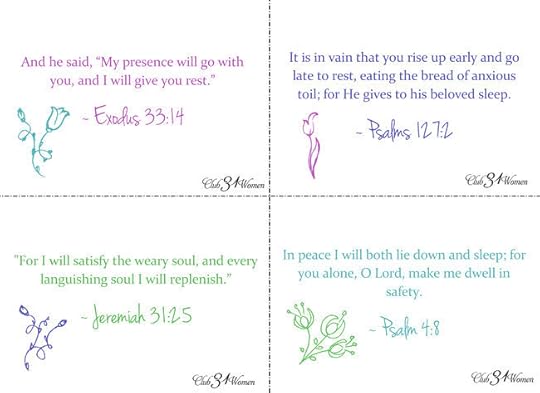 And he said, “My presence will go with
you, and I will give you rest.”
~ Exodus 33:14
Club 31 Women
It is in vain that you rise up early and go
late to rest, eating the bread of anxious
toil; for He gives to his beloved sleep.
~ Psalms 127:2
Club 31 Women
"For I will satisfy the weary soul, and every
languishing soul I will replenish.”
~ Jeremiah 31:25
Club 31 Women
In peace I will both lie down and sleep; for
you alone, O Lord, make me dwell in
safety.
~ Psalm 4:8
Club 31 Women